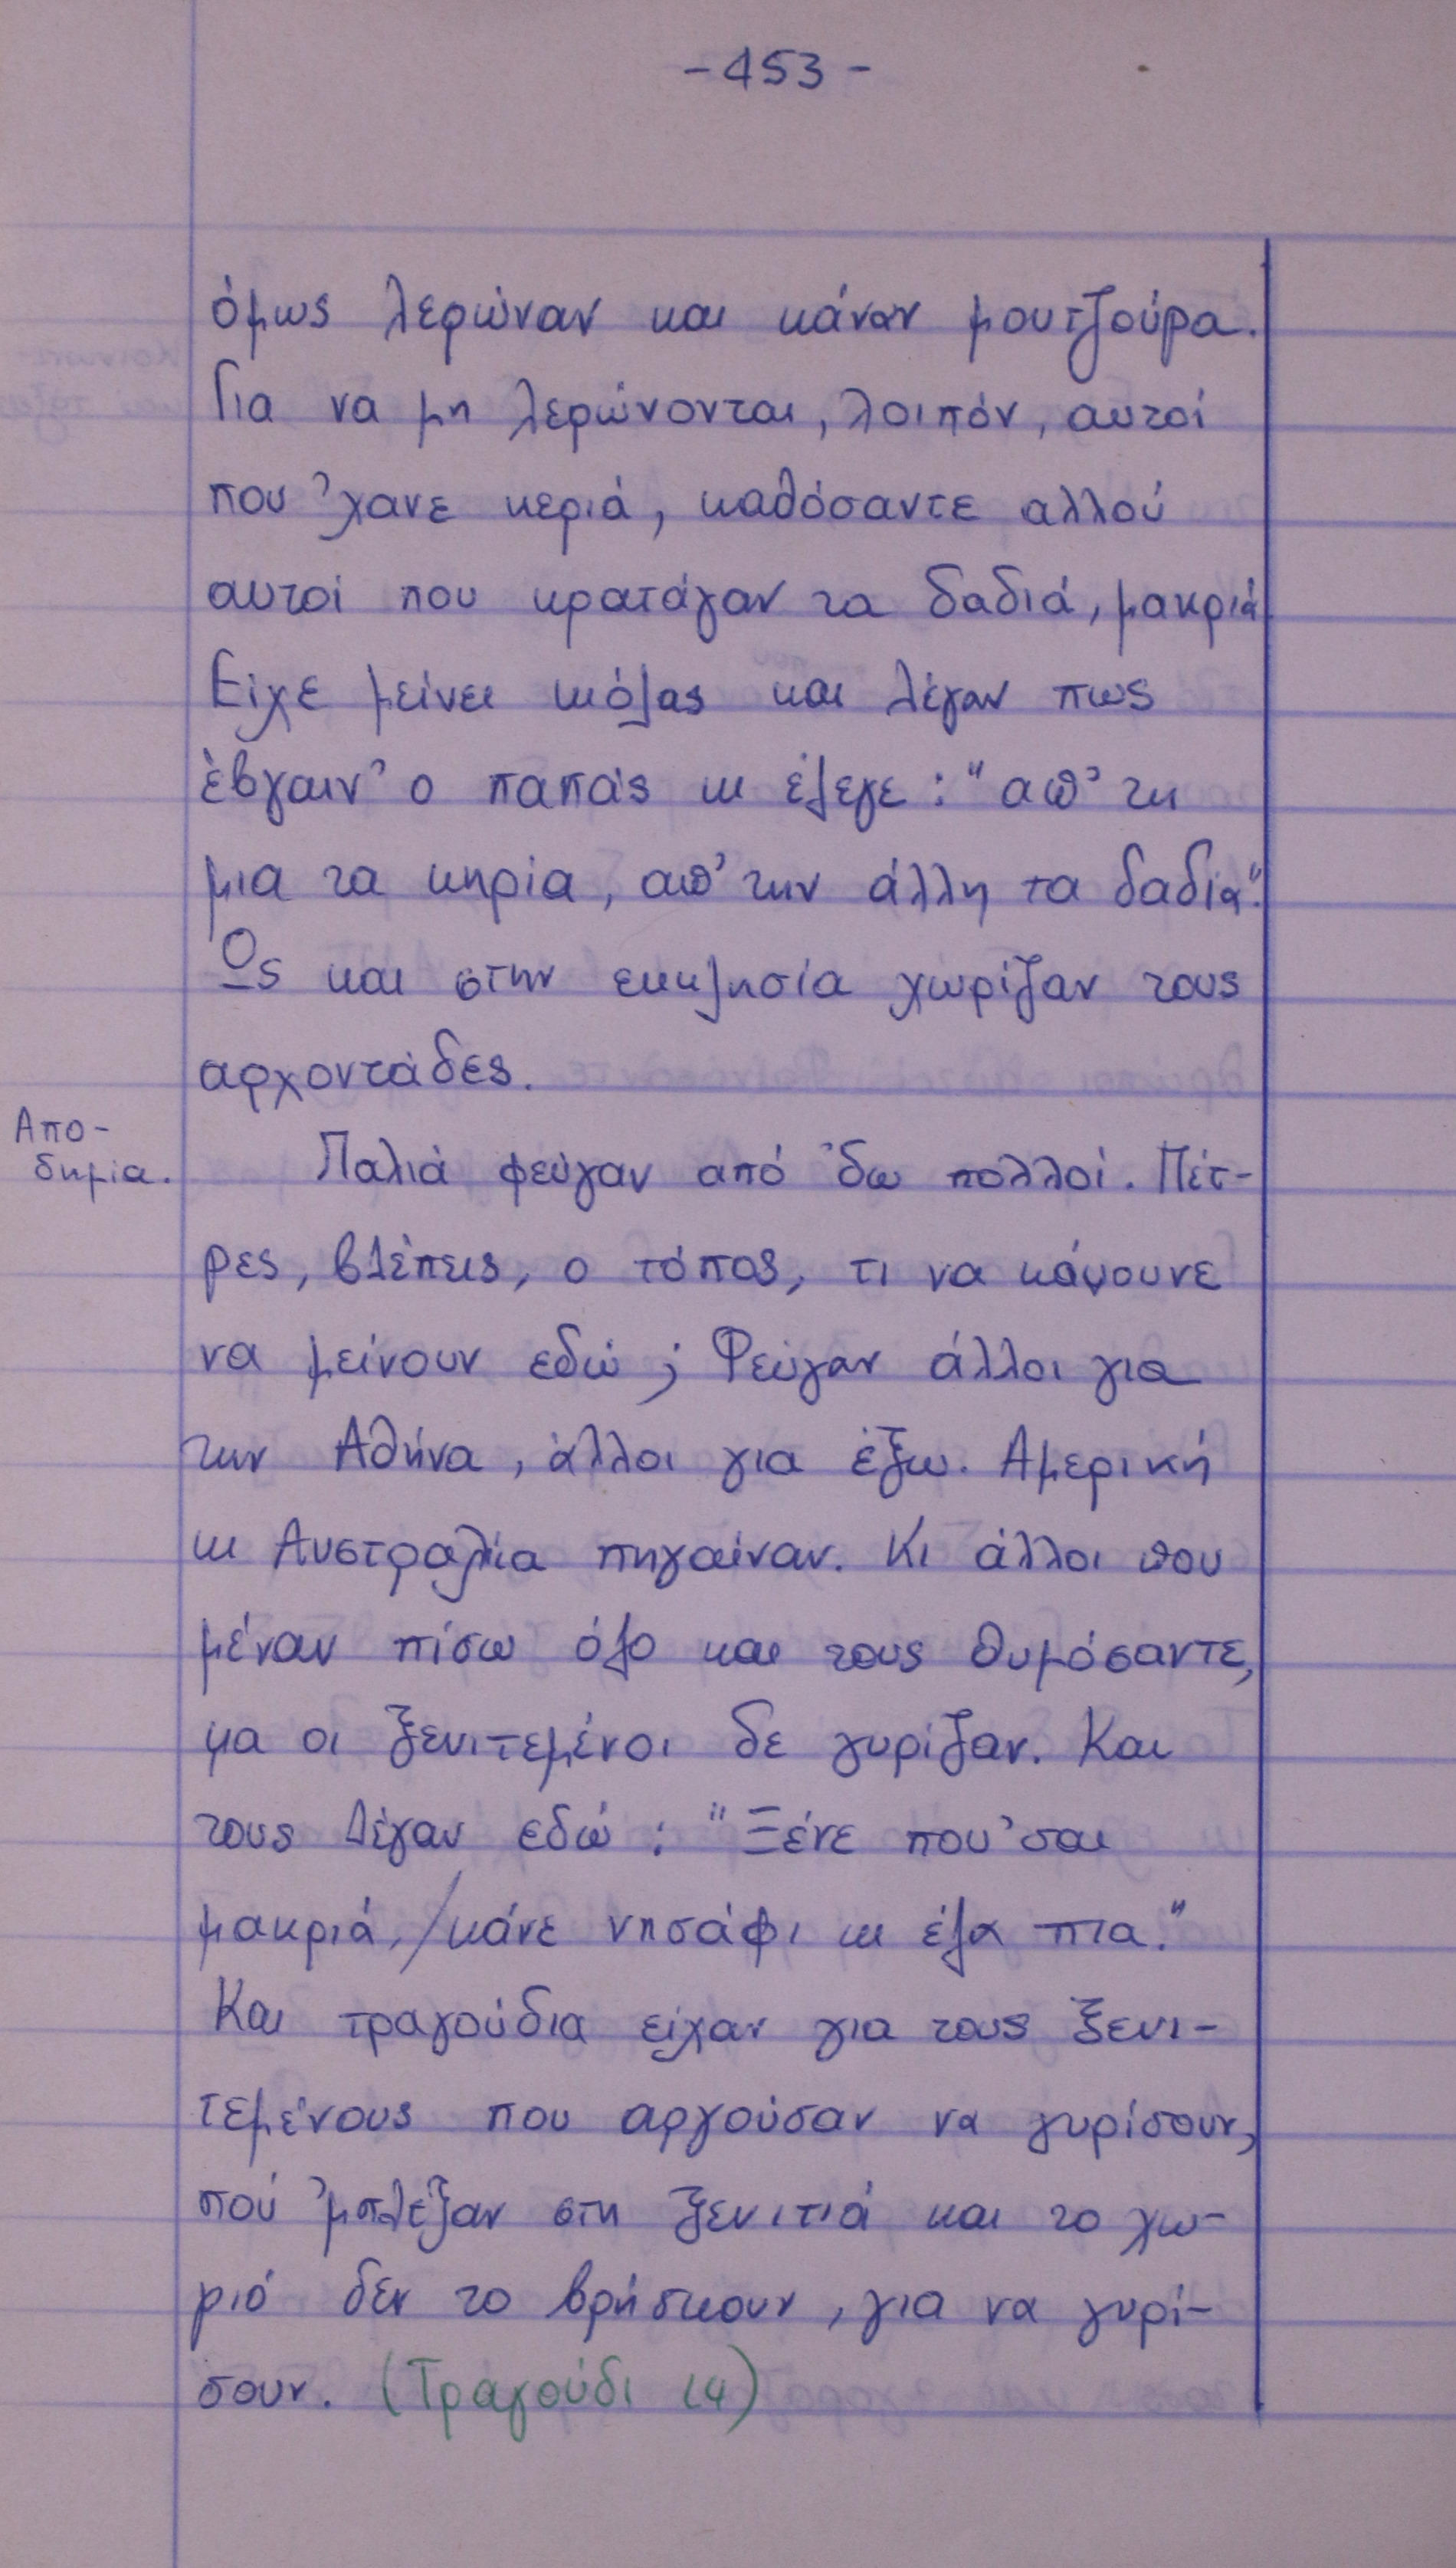 -453-
όμως λερώναν και κάναν μουτζούρα.
Για να μη λερώνονται, λοιπόν, αυτοί
που 'χανε κεριά, καθόσαντε αλλού
αυτοί που κρατάγαν τα δαδιά, μακριά
Είχε μείνει κιόλας και λέγαν πως
έβγαιν' ο παπάς κι έλεγε: "απ' τη
μια τα κηρία, απ' την άλλη τα δαδία".
Ως και στην εκκλησία χωρίζαν τους
αρχοντάδες.
Απο-
δημία.
Παλιά φεύγαν από 'δω πολλοί. Πέτ-
ρες, βλέπεις, ο τόπος, τι να κάνουνε
να μείνουν εδώ; Φεύγαν άλλοι για
την Αθήνα, άλλοι για έξω. Αμερική
κι Αυστραλία πηγαίναν. Κι άλλοι που
μέναν πίσω όλο και τους θυμόσαντε,
μα οι ξενιτεμένοι δε γυρίζαν. Και
τους λέγαν εδώ: "Ξένε που 'σαι
μακριά, /κάνε νησάφι κι έλα πια."
Και τραγούδια είχαν για τους ξενι-
τεμένους που αργούσαν να γυρίσουν,
πού 'μπλέξαν στη ξενιτιά και το χω-
ριό δεν το βρήσκουν, για να γυρί-
σουν. (Τραγούδι 14)